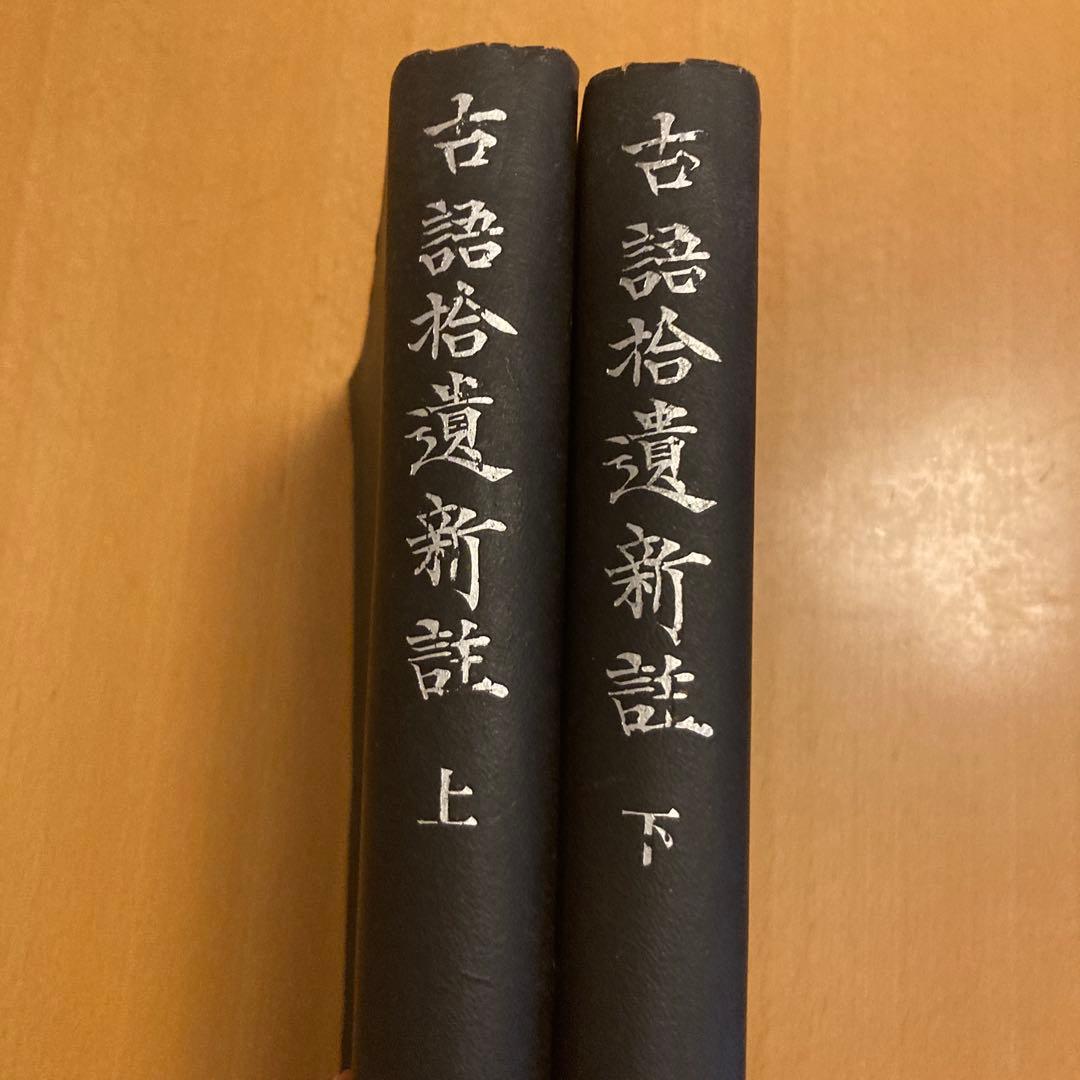 古語拾遺新註 上
古語拾遺新註 下